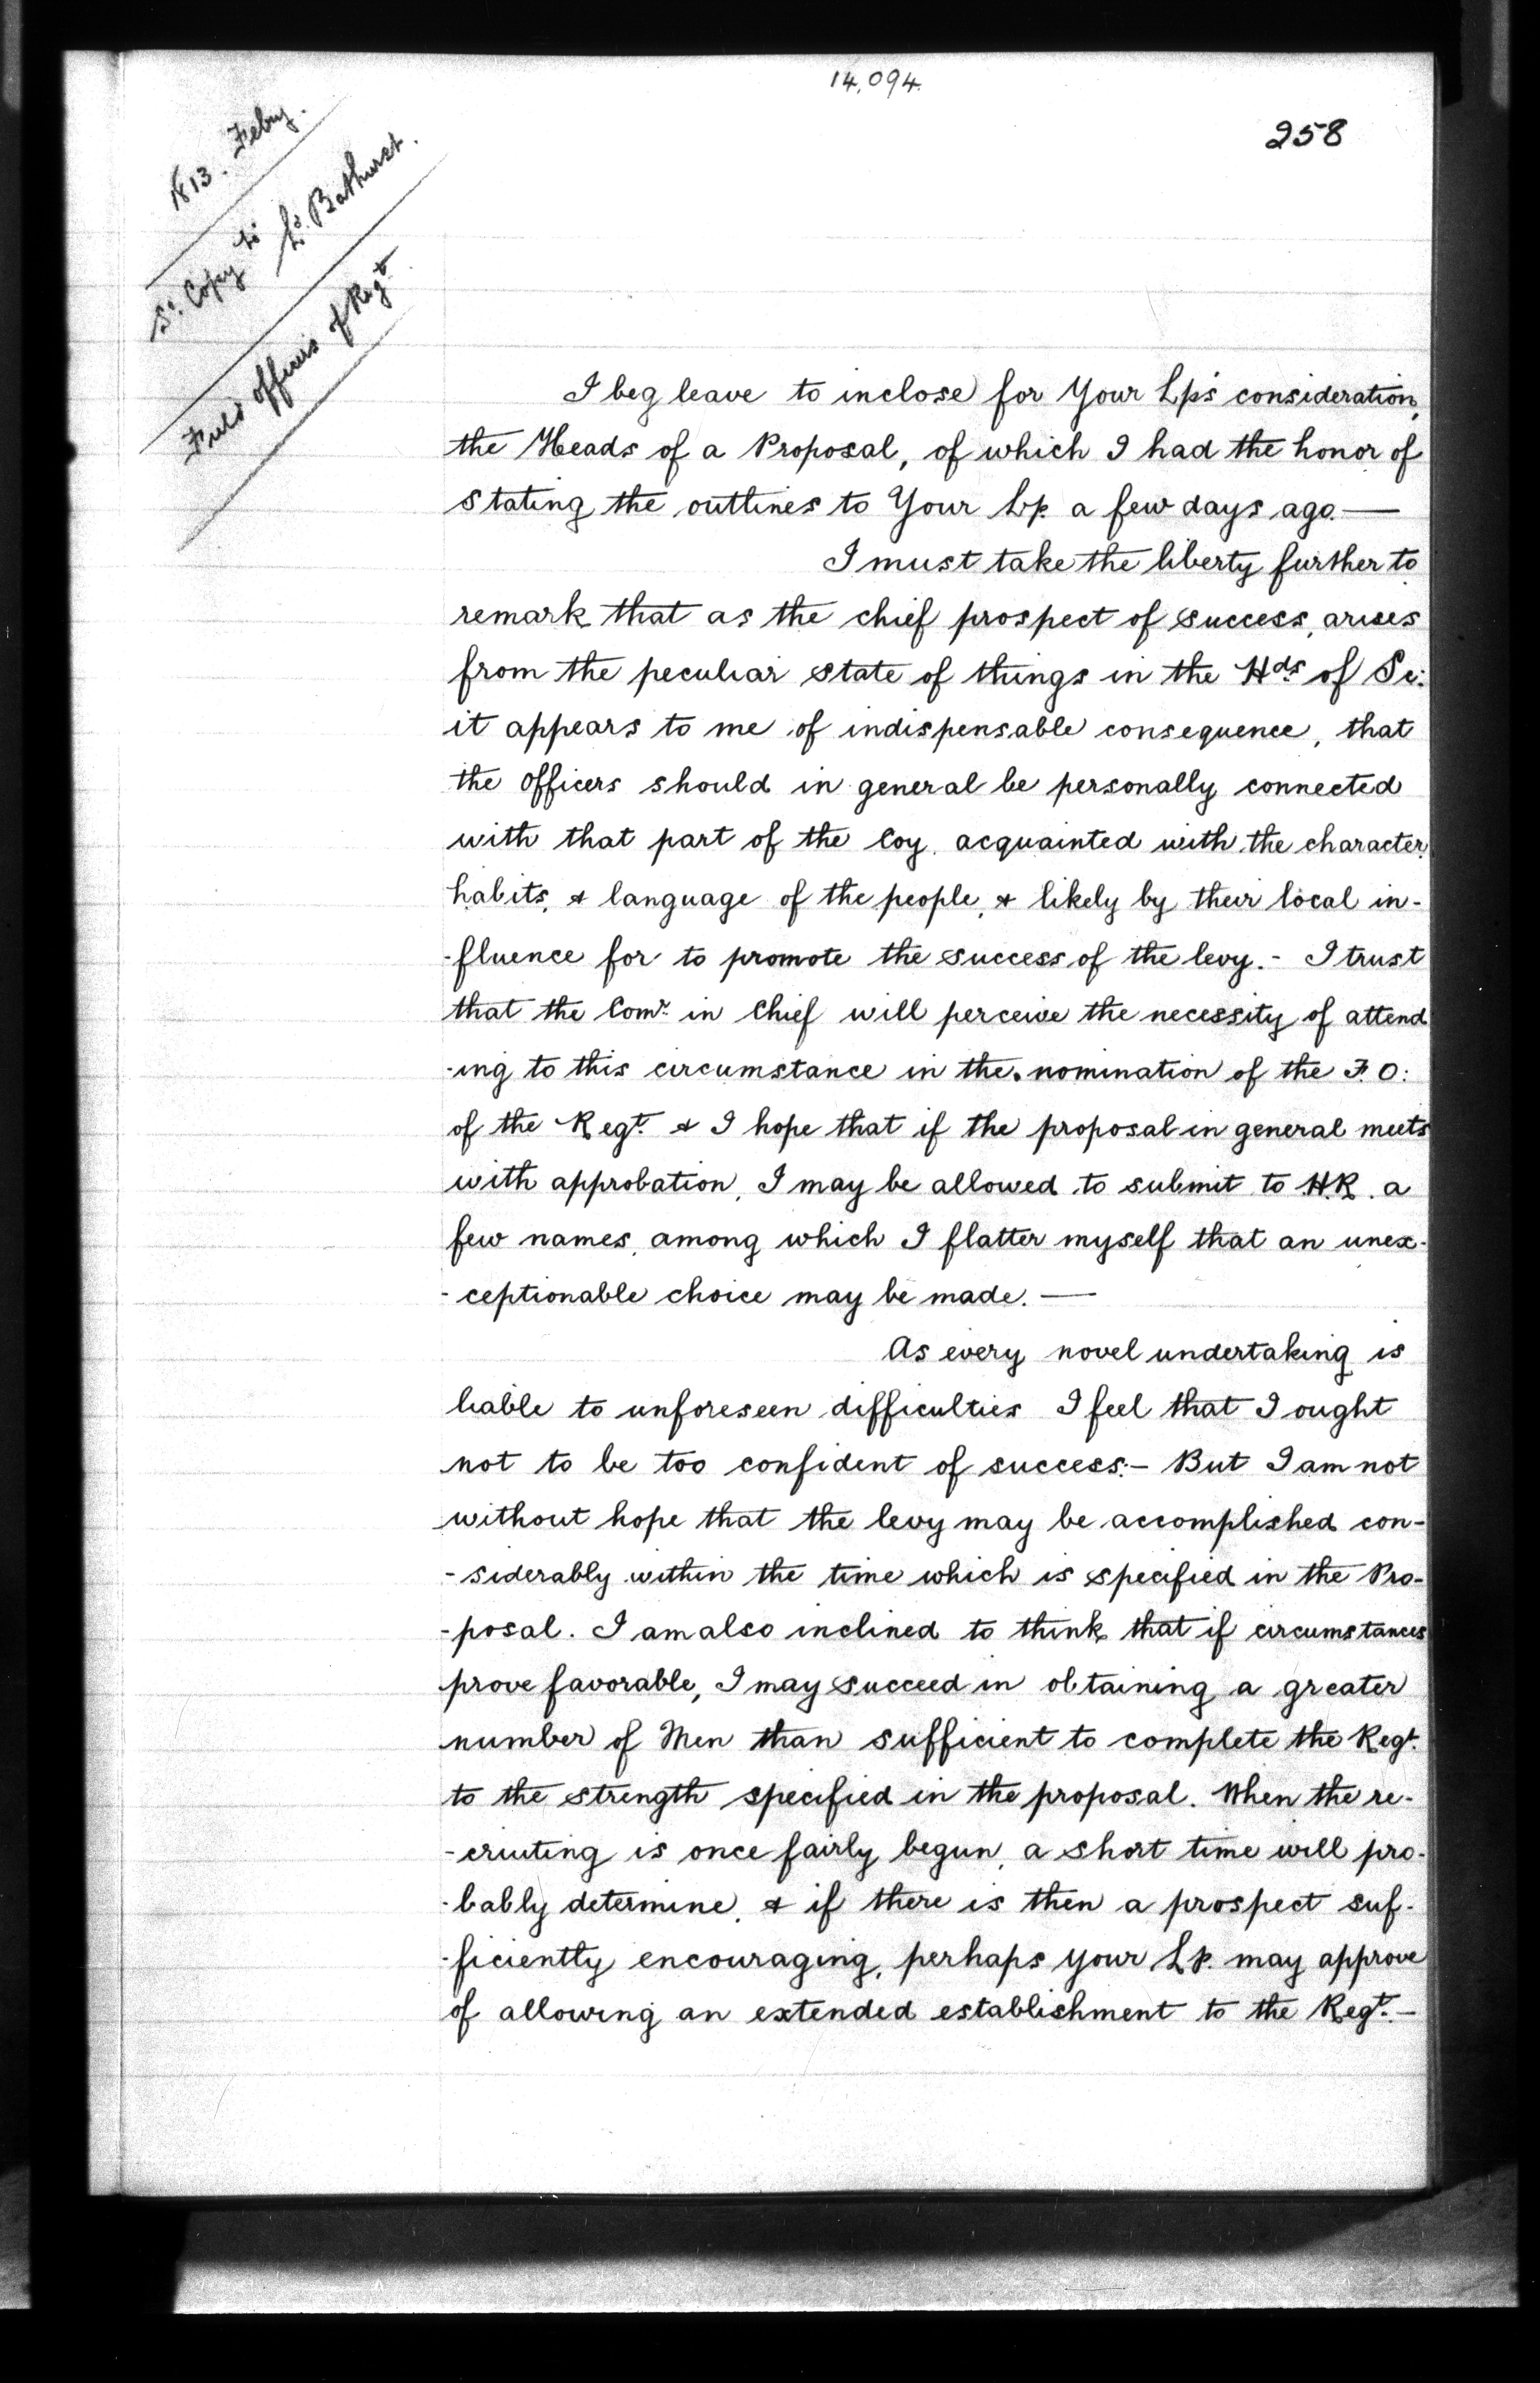 14,094.
258
1813. Feby.
Sr. Copy to Ld. Bathurst.
Field officers of Regt
I beg leave to inclose for Your Lp's consideration,
the Heads of a Proposal, of which I had the honor of
stating the outlines to Your Lp. a few days ago.—
I must take the liberty further to
remark that as the chief prospect of success, arises
from the peculiar state of things in the Hds. of Sc:
it appears to me of indispensable consequence, that
the officers should in general be personally connected
with that part of the Coy. acquainted with the character,
habits, & language of the people, & likely by their local in-
-fluence for to promote the success of the levy.- I trust
that the Comr. in Chief will perceive the necessity of attend
-ing to this circumstance in the nomination of the F.O:
of the Regt. & I hope that if the proposal in general meets
with approbation, I may be allowed to submit to H.R. a
few names, among which I flatter myself that an unex-
-ceptionable choice may be made.—
As every novel undertaking is
liable to unforeseen difficulties I feel that I ought
not to be too confident of success:- But I am not
without hope that the levy may be accomplished con-
-siderably within the time which is specified in the Pro-
-posal. I am also inclined to think that if circumstances
prove favorable, I may succeed in obtaining a greater
number of Men than sufficient to complete the Regt.
to the strength specified in the proposal. When the re-
-cruiting is once fairly begun, a short time will pro-
-bably determine, & if there is then a prospect suf-
-ficiently encouraging, perhaps your Lp. may approve
of allowing an extended establishment to the Regt.-